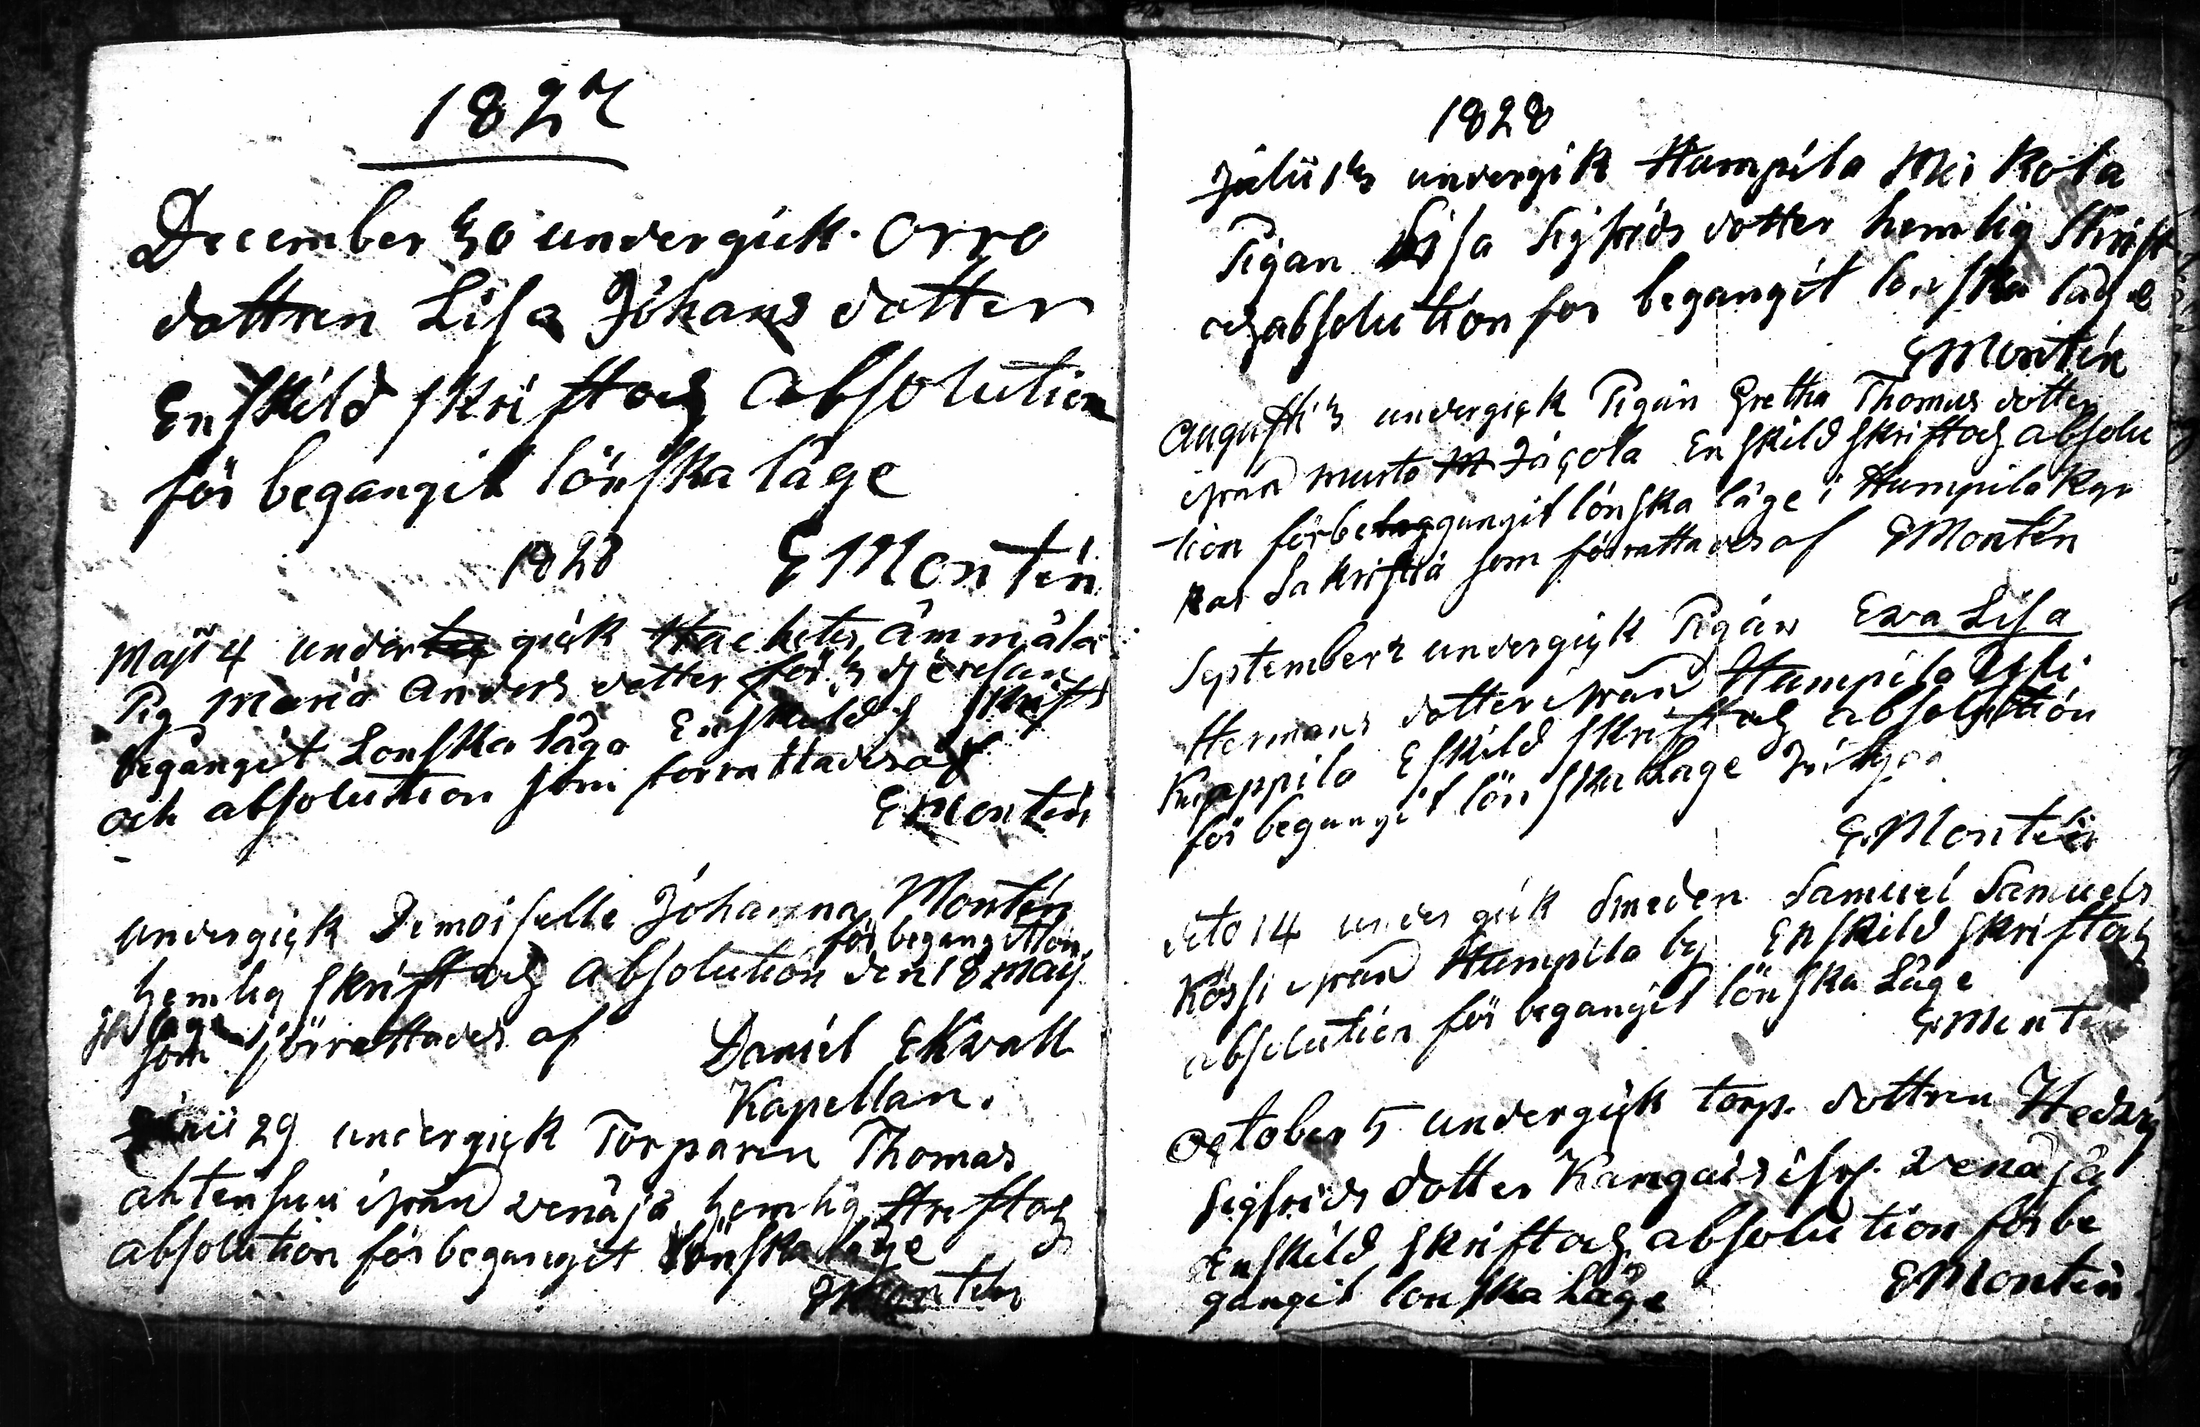 1827
December 30 undergick Orro
dottren Lisa Johans dotter
Enskild skrift och absolution
för begangit lönska läge
1828 EMontén
Maji 4 under gick Ham
Pig Maria Anders dotter för
begångit Lonska läga Enskild skrift
och absolution som forrattades af
EMontén
undergick Demoiselle Johanna Montén
för begangit lön
hemlig skrift och absolution den 18 maij
ska läge
som förrattades af Daniel Ekwall
Kapellan.
Junii 29 undergick Torparen Thomas
ahtensuu ifrån venäjä hemlig skrift och
absolution för begangit lönska läge
EMontén
1828
Julii 13 undergik Humpila Mikola
Pigan Lisa Sigfrids dotter hemlig skrift
och absolution for begangit lonska läge
EMontén
Augusti 3 undergick Pigan Gretha Thomas dotter
ifrån Murto Jacola Enskild skrift och absolu
tion för be gangit lönska läge i Humpila Kyr
kas Sakristia som förrattades af EMontén
September undergick Pigan Ewa Lisa
Hermans dotter ifrån Humpila
Kuappila Eskild skrift och absolution
för begangit lönska Läge
EMontén
deto 14 undergick Smeden Samuel Samuels
Kössi ifrån Humpila by Enskild skrift och
absolution för begangit lönska Läge
EMontén
October 5 undergick torp. dottren Hedvig
Sigfrids dotter Kangais ifr. venäjä
Enskild skrift och absolution för be
gangit lonska Läge EMontén